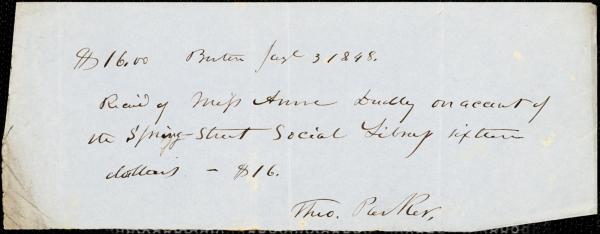 $16.00 Boston Jany 3 1848.
Receid of Miss Anne Dudley on account of
the Spring-Street Social Library sixteen
dollars — $16.
Theo. Parker.